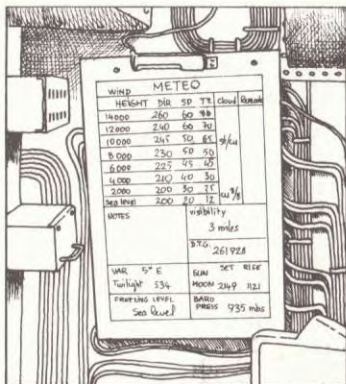 METEO
WIND
HEIGHT DIR SP Cloud Remarks
14000 260 60
12000 240 60 70
10000 245 50 65 st/cu
8000 230 50 50
6000 225 45 45
4000 210 40 30
2000 200 30 25 cu 3/8
Sea level 200 20 12
NOTES visibility
3 miles
D.T.G. 261928
VAR 5° E SUN SET RISE
Twilight 534 MOON 2149 1121
FREEZING LEVEL BARO
Sea level PRESS 935 mbs